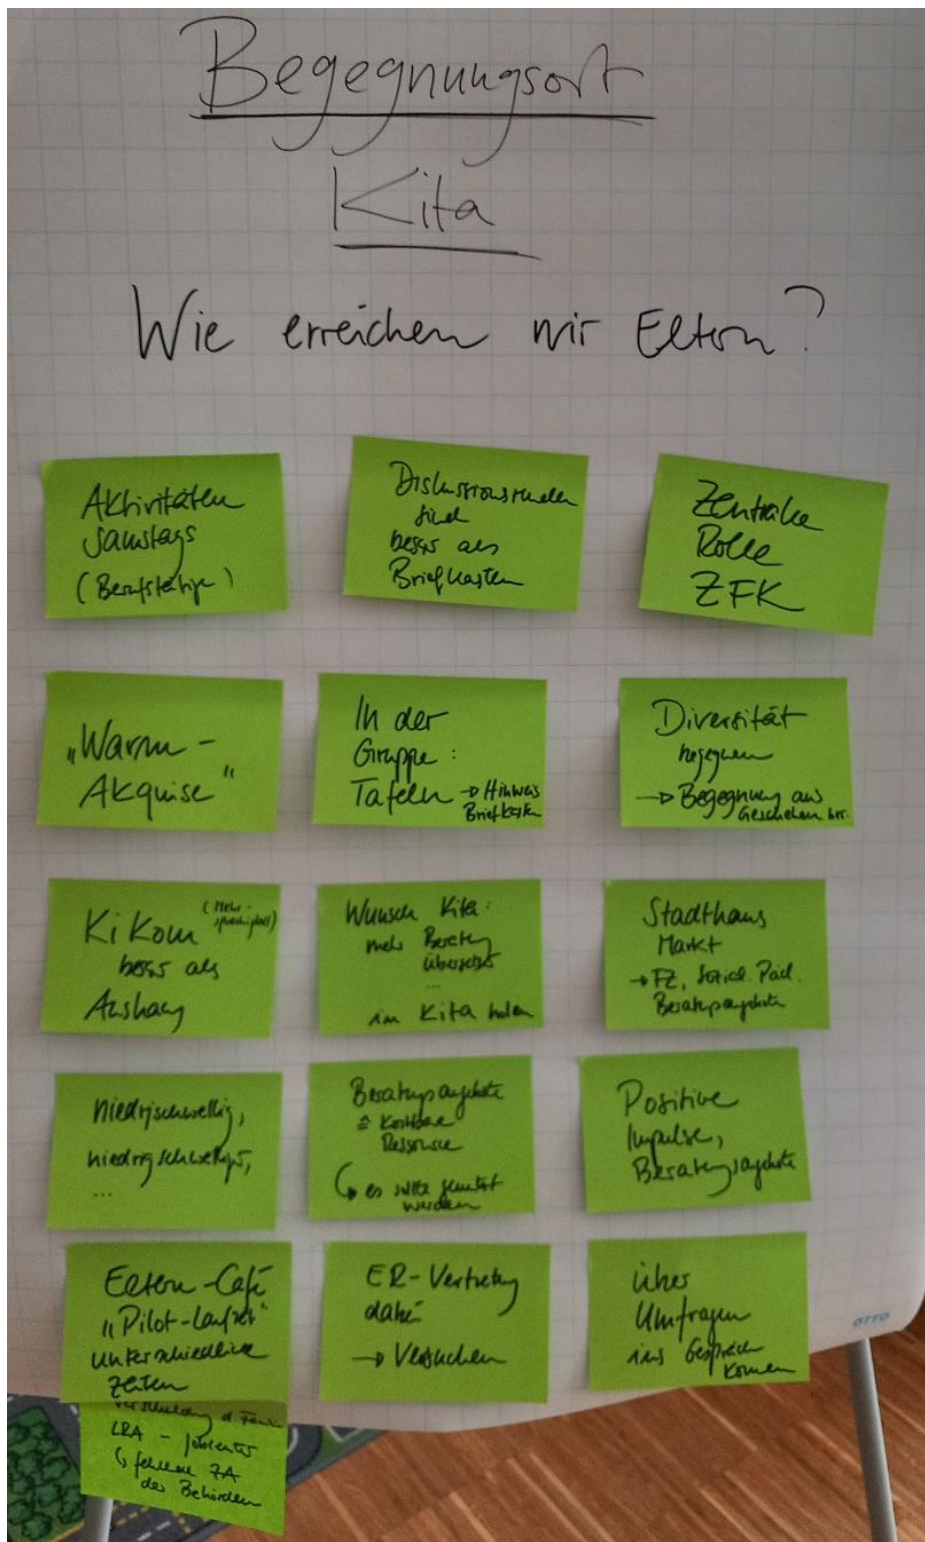 Begegnungsort
Kita
Wie erreichen wir Eltern?
Aktivitäten
samstags
(Berufstätige)
Diskussionsrunden
sind
besser als
Briefkasten
Zentrale
Rolle
ZFK
"Warm-
Akquise"
In der
Gruppe:
Tafeln → Hinweis
Briefkasten
Diversität
begegnen
→ Begegnung aus
Geschehen her.
KiKom (Mehr-
sprachigkeit)
besser als
Aushang
Wunsch Kita:
mehr Beratung
übersetzt
...
in Kita holen
Stadthaus
Markt
→ FZ, Sozial. Päd.
Beratungsangebote
niedrigschwellig,
niedrigschwellig,
...
Beratungsangebote
≙ kostbare
Ressource
↳ es sollte genutzt
werden
Positive
Impulse,
Beratungsangebote
Eltern-Café
"Pilot-Laufzeit"
unterschiedliche
Zeiten
LRA - Jobcenter
↳ fehlende ZA
der Behörden
ER-Vertretung
dabei
→ Versuchen
über
Umfragen
ins Gespräch
kommen
OTTO